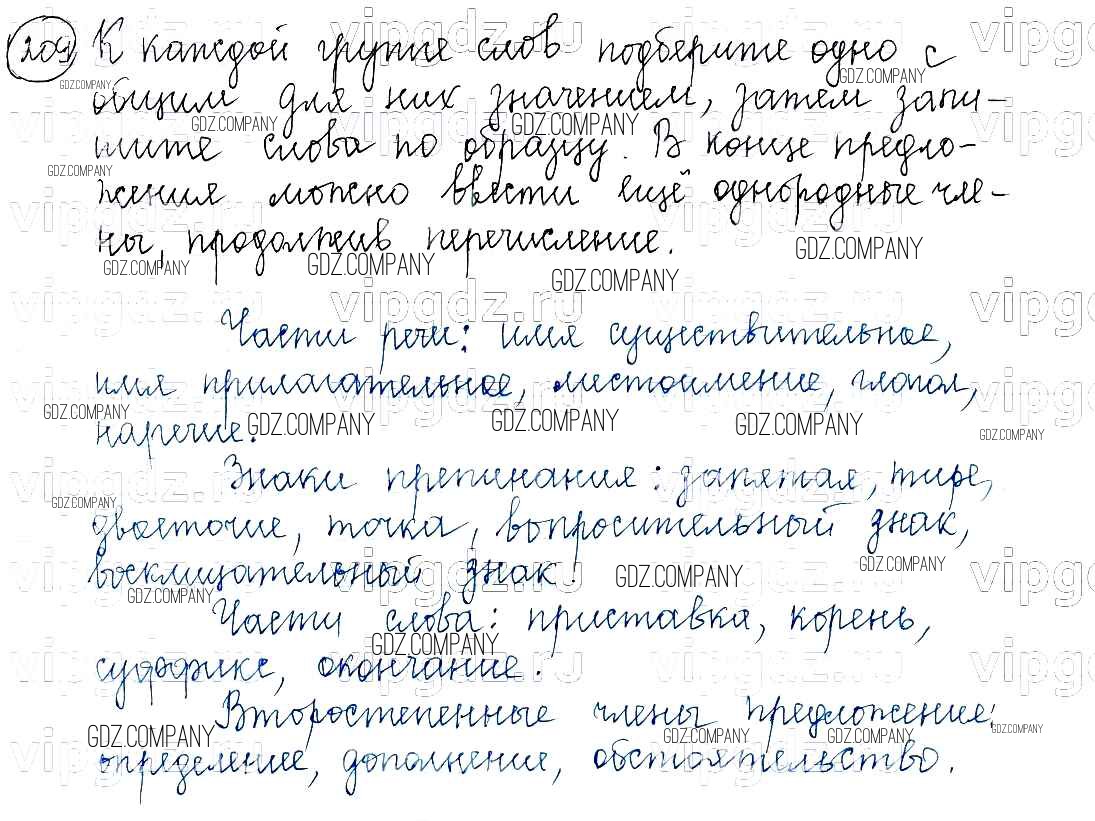 209 К каждой группе слов подберите одно с
общим для них значением, затем запи-
шите слова по образцу. В конце предло-
жения можно ввести ещё однородные чле-
ны, продолжив перечисление.
Части речи: имя существительное,
имя прилагательное, местоимение, глагол,
наречие.
Знаки препинания: запятая, тире,
двоеточие, точка, вопросительный знак,
восклицательный знак.
Части слова: приставка, корень,
суффикс, окончание.
Второстепенные члены предложения:
определение, дополнение, обстоятельство.
GDZ.COMPANY
vipgdz.ru